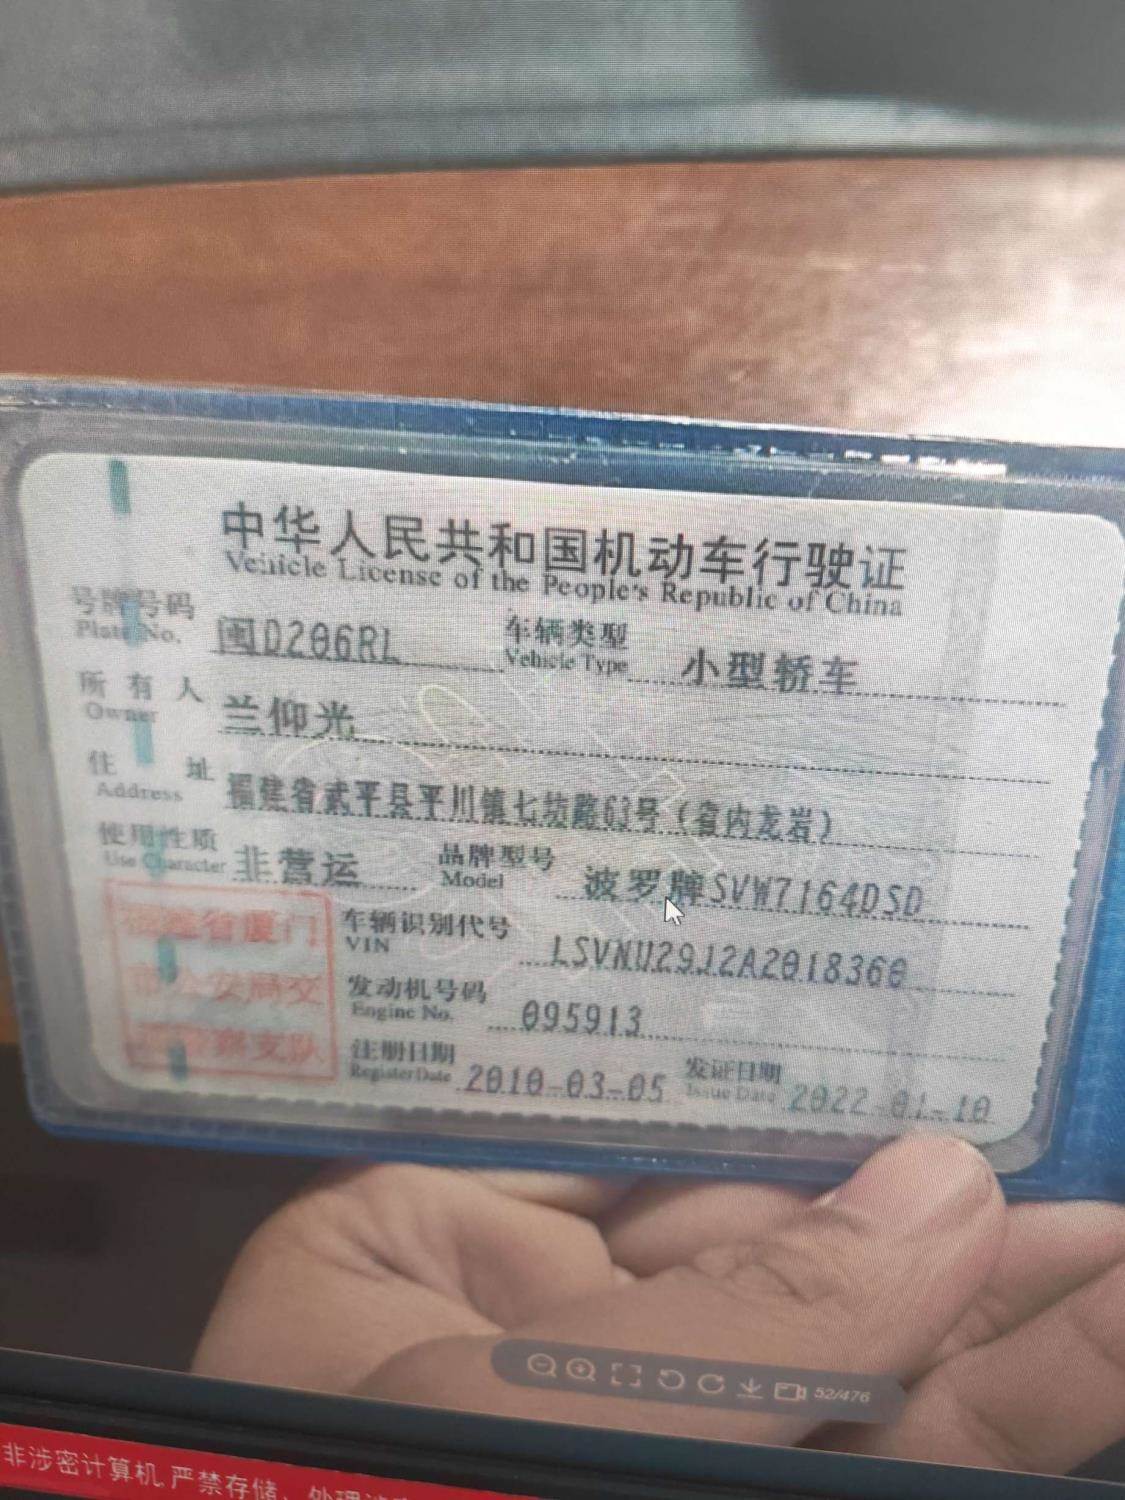 中华人民共和国机动车行驶证
Vehicle License of the People's Republic of China
号牌号码 闽D206RL 车辆类型 小型轿车
Plate No. Vehicle Type
所有人 兰仰光
Owner
住址 福建省武平县平川镇七坊路63号（省内龙岩）
Address
使用性质 非营运 品牌型号 波罗牌SVW7164DSD
Use Character Model
福建省厦门 车辆识别代号 LSVNU29J2A2018360
VIN
市公安局交 发动机号码 095913
Engine No.
通警察支队 注册日期 2010-03-05 发证日期 2022-01-10
Register Date Issue Date
52/476
非涉密计算机,严禁存储、处理